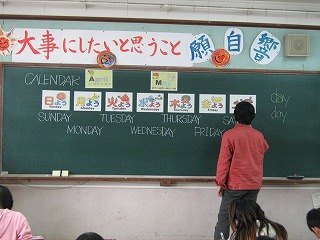 大事にしたいと思うこと
願 自 響
CALENDAR April May
日よう 月よう 火よう 水よう 木よう 金よう
day
day
SUNDAY TUESDAY THURSDAY SA
MONDAY WEDNESDAY FRIDAY